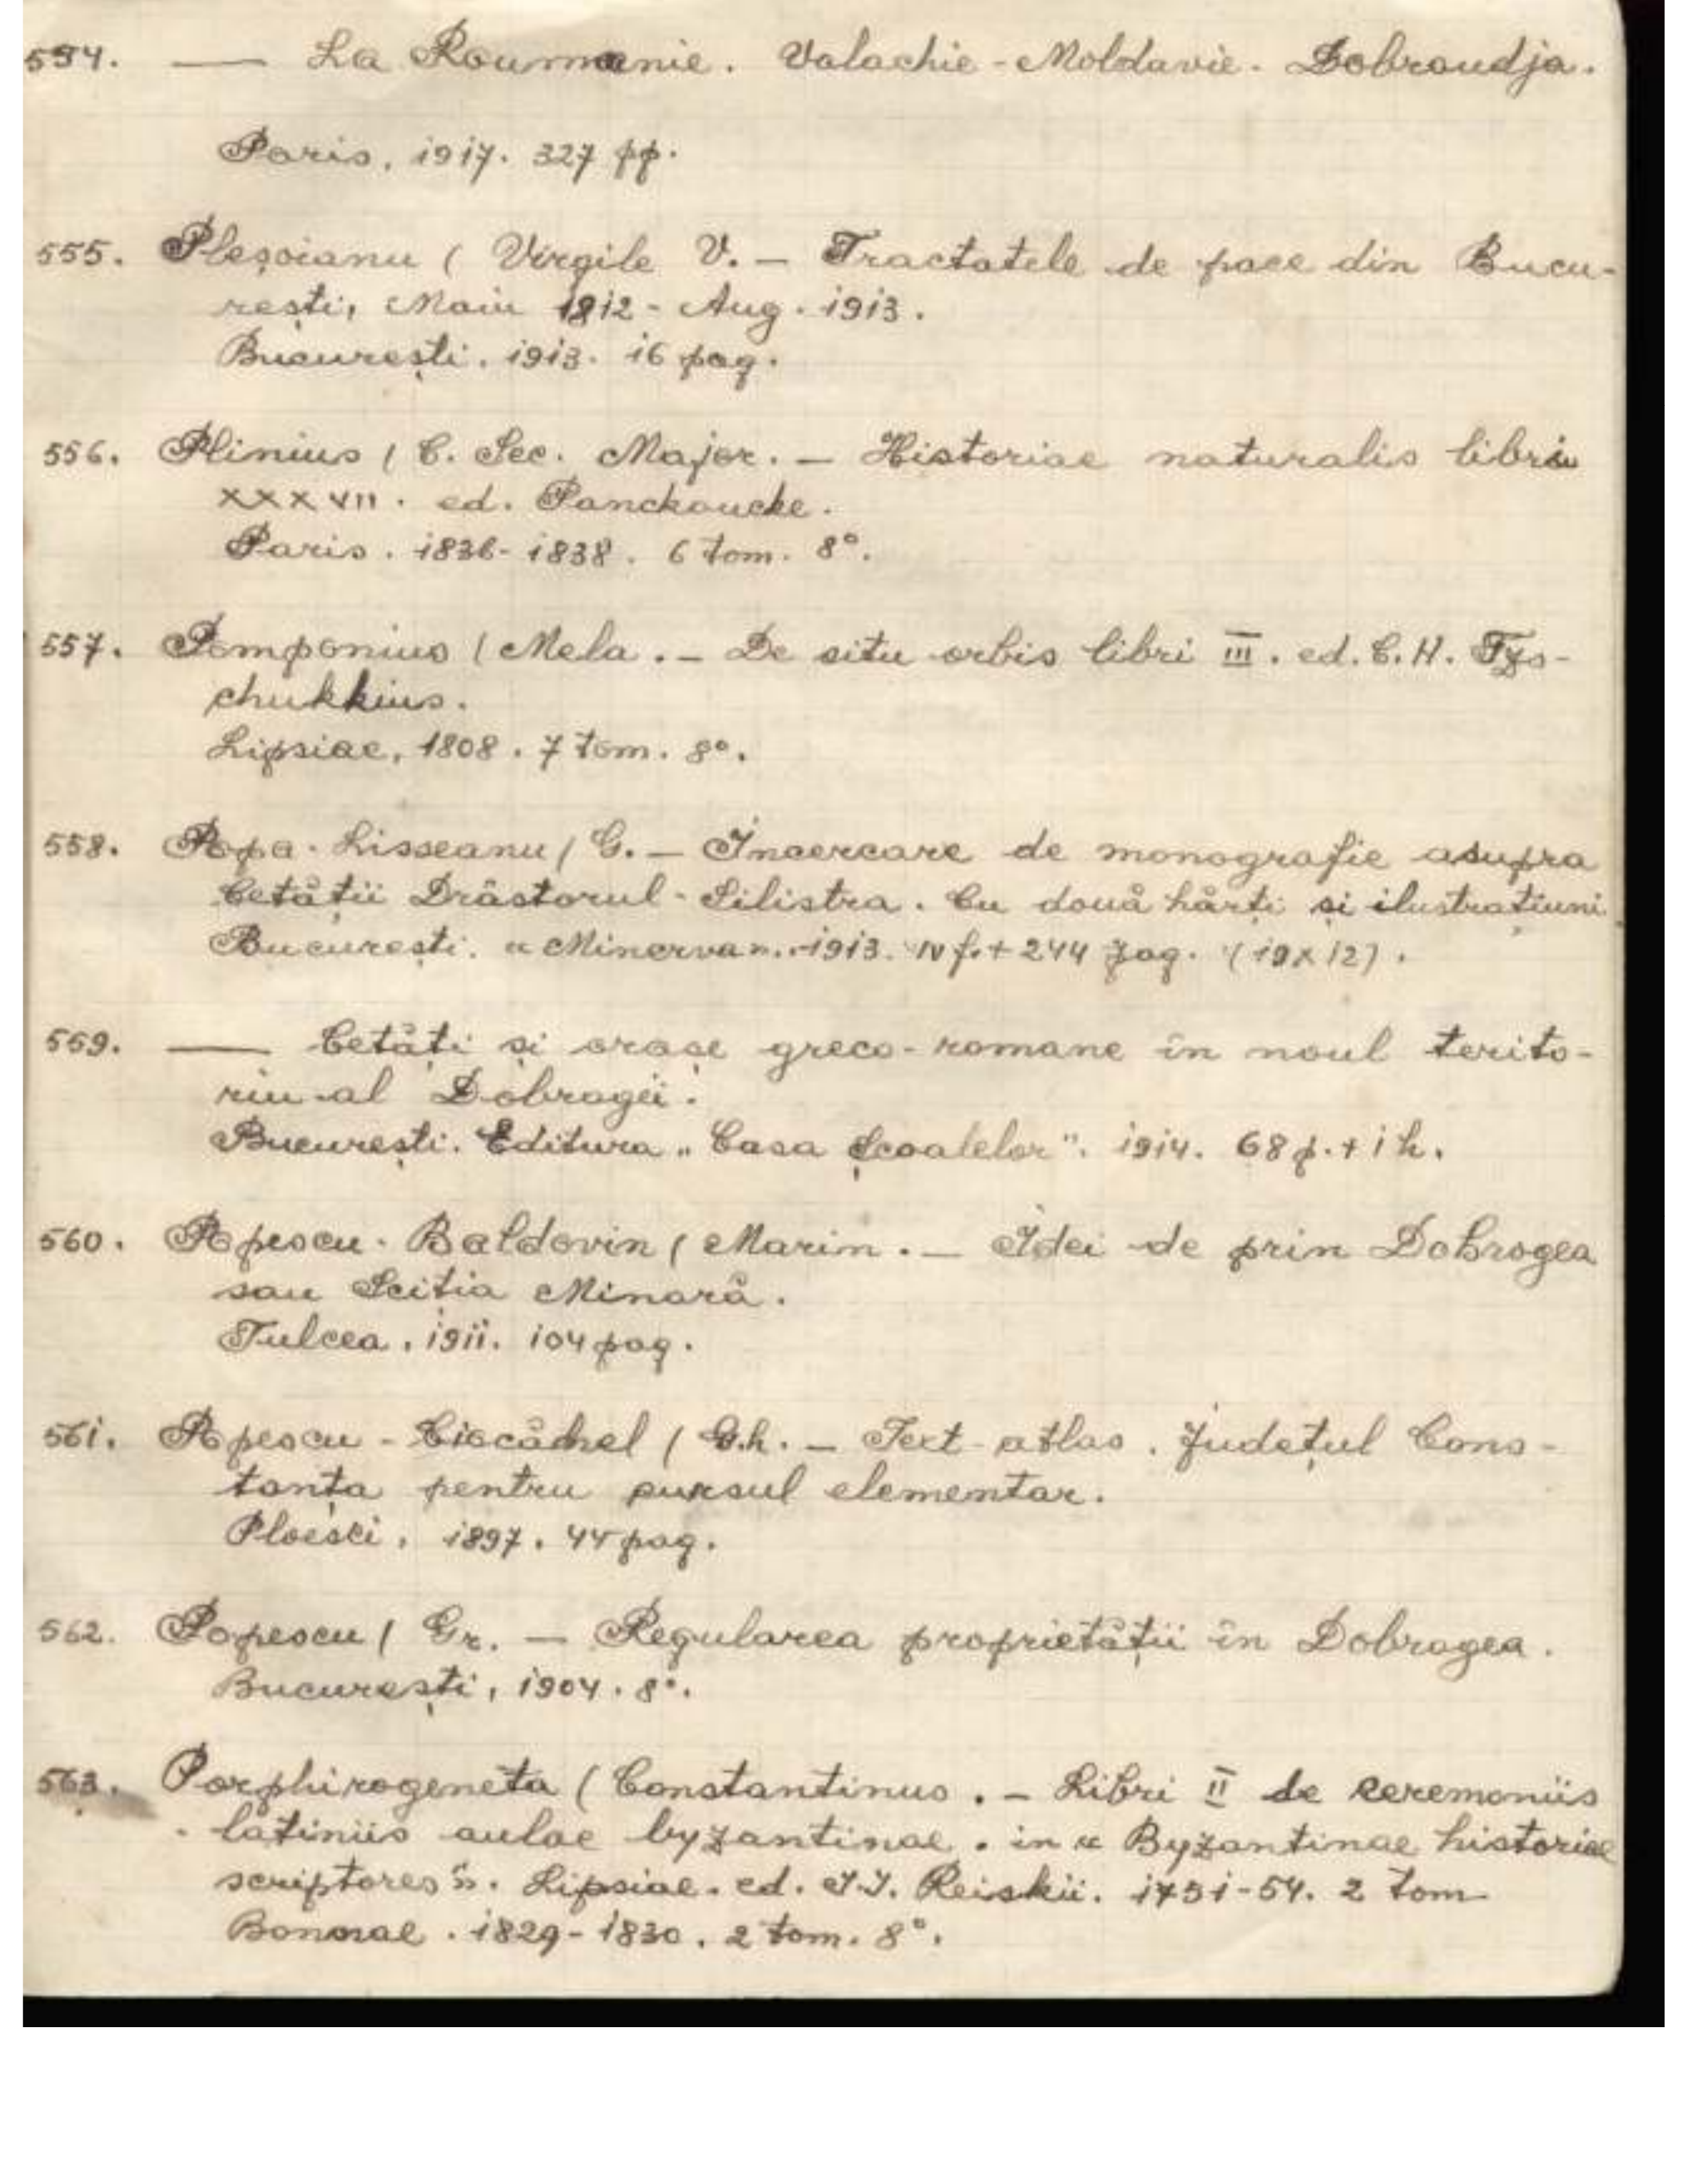 554. — La Roumanie. Valachie-Moldavie. Dobroudja.
Paris, 1917. 327 pp.
555. Pleșoianu ( Virgile V. — Tractatele de pace din Bucu-
rești, Maiu 1812 - Aug. 1913.
București. 1913. 16 pag.
556. Plinius ( C. Sec. Major. — Historiae naturalis libri
XXXVII. ed. Panckoucke.
Paris. 1836-1838. 6 tom. 8°.
557. Pomponius ( Mela. — De situ orbis libri III. ed. C. H. Tzs-
chukkius.
Lipsiae, 1808. 7 tom. 8°.
558. Popa-Lisseanu ( G. — Incercare de monografie asupra
Cetății Drăstorul-Silistra. Cu două hărți și ilustrațiuni
București. « Minerva ». 1913. IV f. + 244 pag. (19x12).
559. — Cetăți și orașe greco-romane în noul terito-
riu al Dobrogii.
București. Editura „Casa Școalelor". 1914. 68 p. + 1 h.
560. Popescu-Baldovin ( Marin. — Idei de prin Dobrogea
sau Scitia Minoră.
Tulcea. 1911. 104 pag.
561. Popescu-Ciocănel ( Gh. — Text-atlas. Județul Cons-
tanța pentru cursul elementar.
Ploesci, 1897. 44 pag.
562. Popescu ( Gr. — Regularea proprietății în Dobrogea.
București, 1904. 8°.
563. Porphirogeneta ( Constantinus. — Libri II de ceremoniis
latiniis aulae byzantinae. in « Byzantinae historiae
scriptores ». Lipsiae. ed. I.I. Reiskii. 1751-54. 2 tom
Bonnae. 1829-1830. 2 tom. 8°.